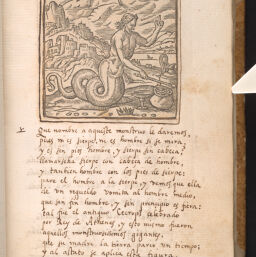 Que nombre a aqueste monstruo le daremos,
pues ni es sierpe, ni es hombre si se mira,
y es sin pies hombre, y sierpe sin cabeça?
llamarasela sierpe con cabeça de hombre,
y tambien hombre con los pies de sierpe:
pare el hombre a la sierpe, y vemos que ella
de un regueldo vomita al hombre medio,
que sin fin hombre, y sin principio es fiera:
tal fue el antiguo Cecrops celebrado
por Rey de Athenas, y esto mismo fueron
aquellos monstruosissimos gigantes,
que su madre la tierra pario un tiempo;
y al astuto se aplica esta figura,